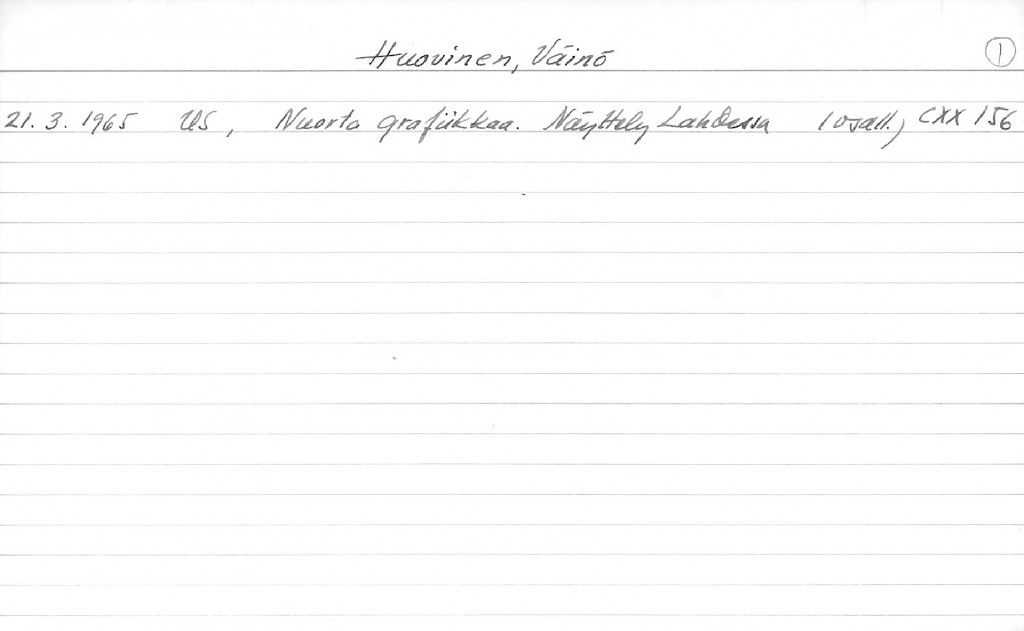 Huovinen, Väinö 1
21. 3. 1965 US, Nuorta grafiikkaa. Näyttely Lahdessa (osall.) CXX 156